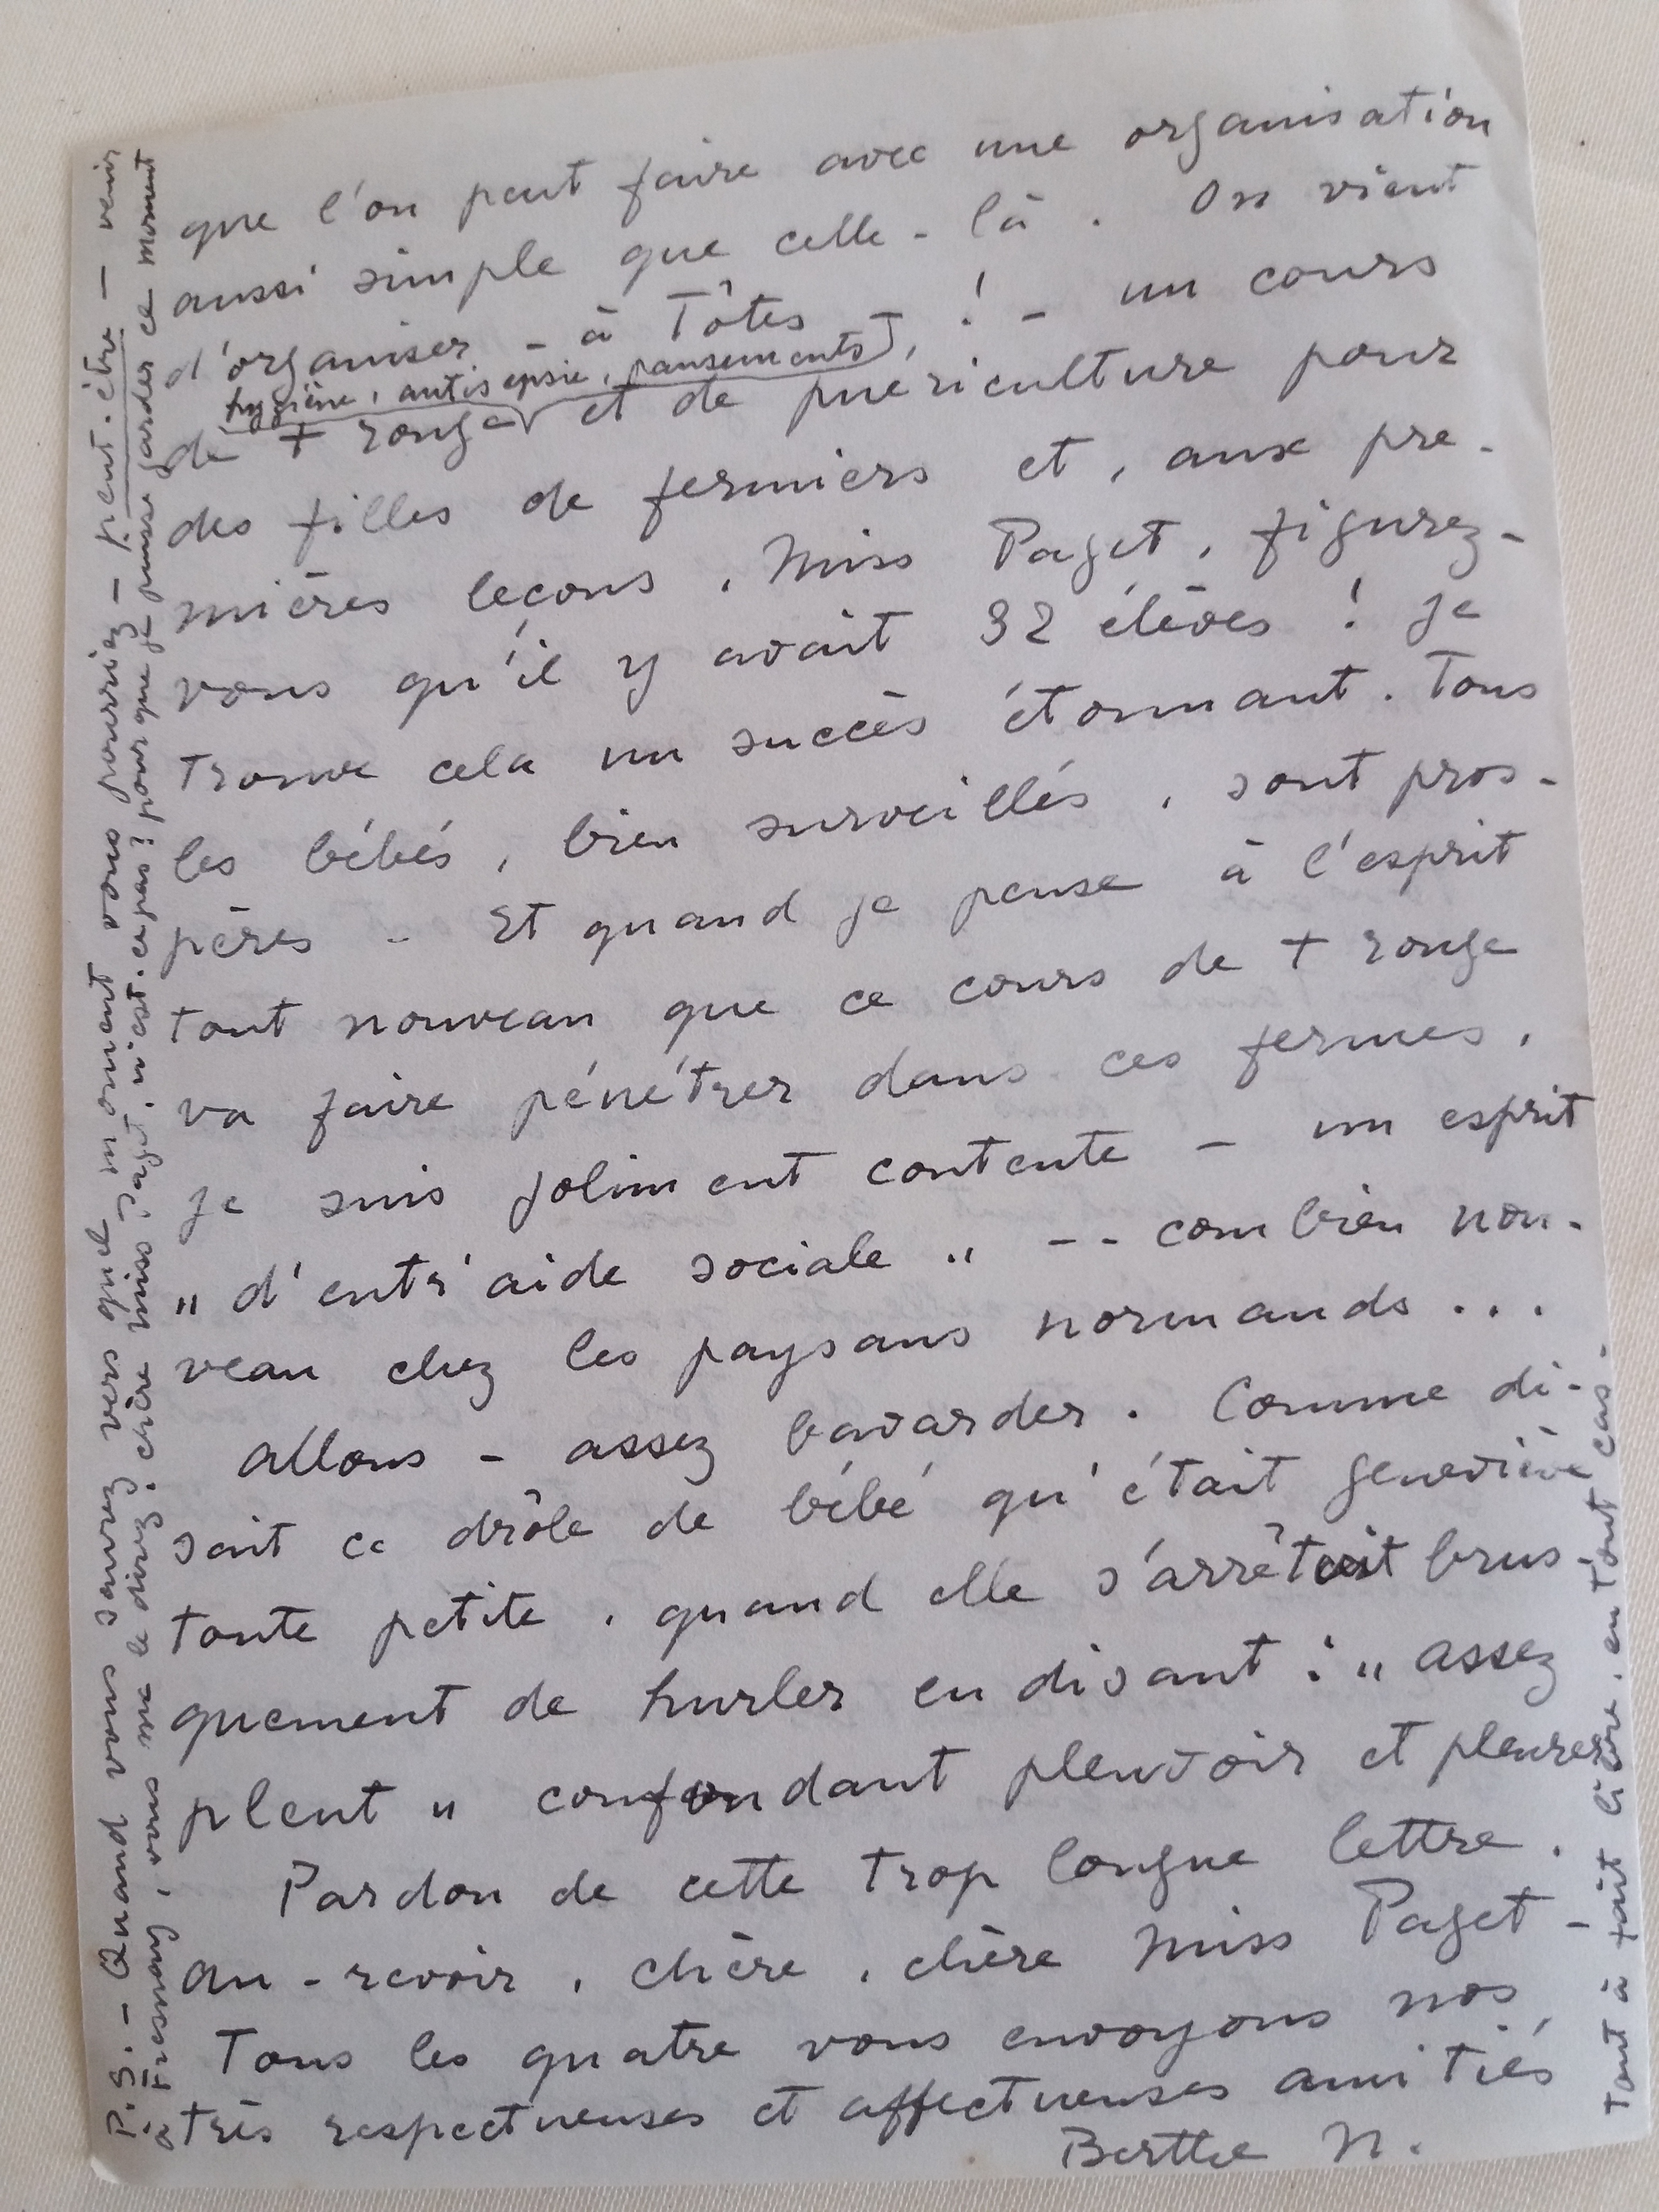 que l'on peut faire avec une organisation
aussi simple que celle-là. On vient
d'organiser - à Tôtes - ! - un cours
hygiène, antisepsie, pansements,
de + rouge et de puériculture pour
des filles de fermiers et, aux pre-
mières leçons, Miss Paget, figurez-
vous qu'il y avait 32 élèves ! Je
trouve cela un succès étonnant. Tous
les bébés, bien surveillés, sont pros-
pères -. Et quand je pense à l'esprit
tout nouveau que ce cours de + rouge
va faire pénétrer dans ces fermes,
je suis joliment contente - un esprit
" d'entr'aide sociale " -- combien nou-
veau chez les paysans normands ...
Allons - assez bavarder. Comme di-
sait ce drôle de bébé qu'était Geneviève
toute petite, quand elle s'arrêtait brus-
quement de hurler en disant : " assez
pleut " confondant pleuvoir et pleurer
Pardon de cette trop longue lettre.
Au-revoir, chère, chère Miss Paget -
Tous les quatre vous envoyons nos
très respectueuses et affectueuses amitiés
Berthe N.
P.S. - Quand vous saurez vers quel moment vous pourriez - peut-être - venir
à Fresnay, vous me le direz, chère Miss Paget, n'est-ce pas ? pour que je puisse garder ce moment
tout à fait libre, en tout cas.